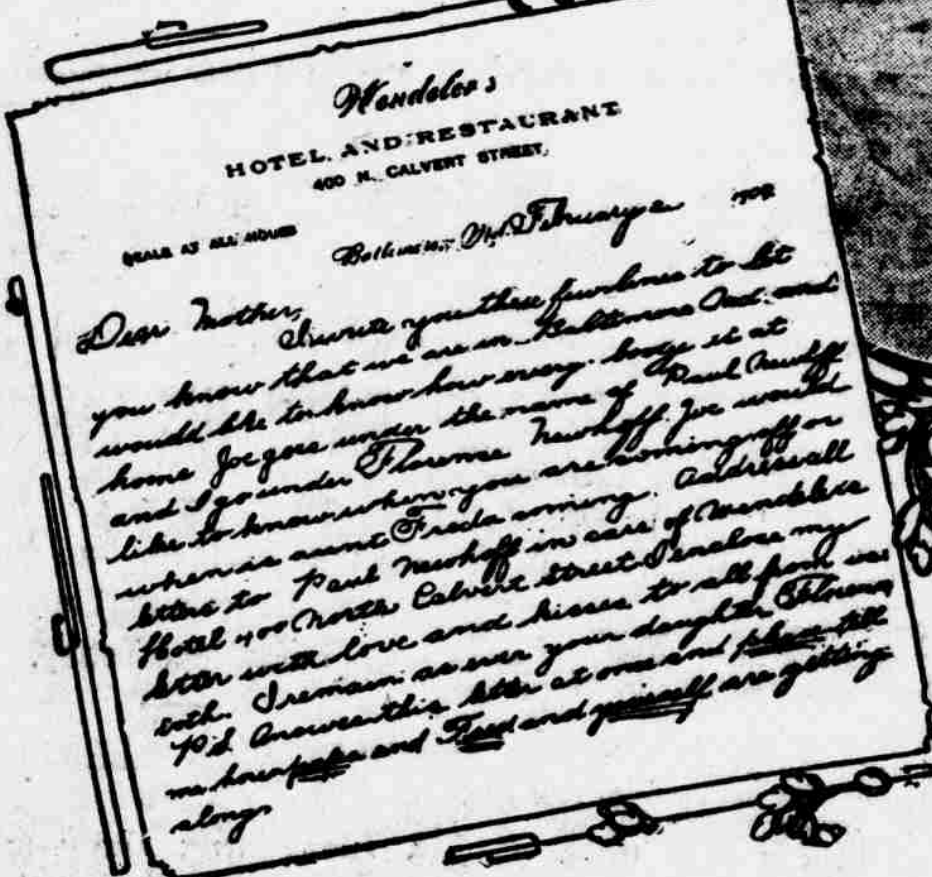 Wendeler's
HOTEL AND RESTAURANT
400 N. CALVERT STREET,
MEALS AT ALL HOURS
Baltimore, Md. February 2 190
Dear Mother,
I write you these few lines to let
you know that we are in Baltimore Md. and
would like to know how every body is at
home Joe goes under the name of Paul Newhoff
and I go under Florence Newhoff. Joe would
like to know when you are coming off or
when is aunt Freda coming. Address all
letters to Paul Newhoff in care of Wendelers
Hotel 400 North Calvert Street I enclose my
letter with love and kisses to all from us
both. I remain as ever your daughter Florence
P.S. Answer this letter at once and please tell
me how papa and Fred and yourself are getting
along.